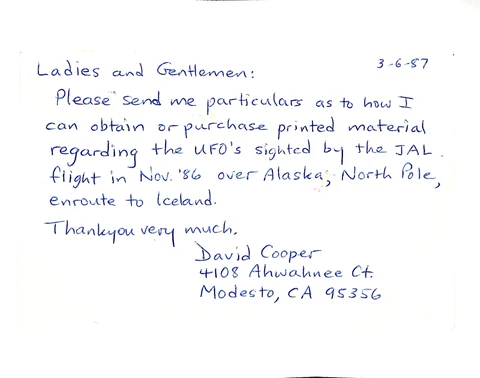 3-6-87
Ladies and Gentlemen:
Please send me particulars as to how I
can obtain or purchase printed material
regarding the UFO's sighted by the JAL
flight in Nov. '86 over Alaska, North Pole,
enroute to Iceland.
Thankyou very much.
David Cooper
4108 Ahwahnee Ct.
Modesto, CA 95356